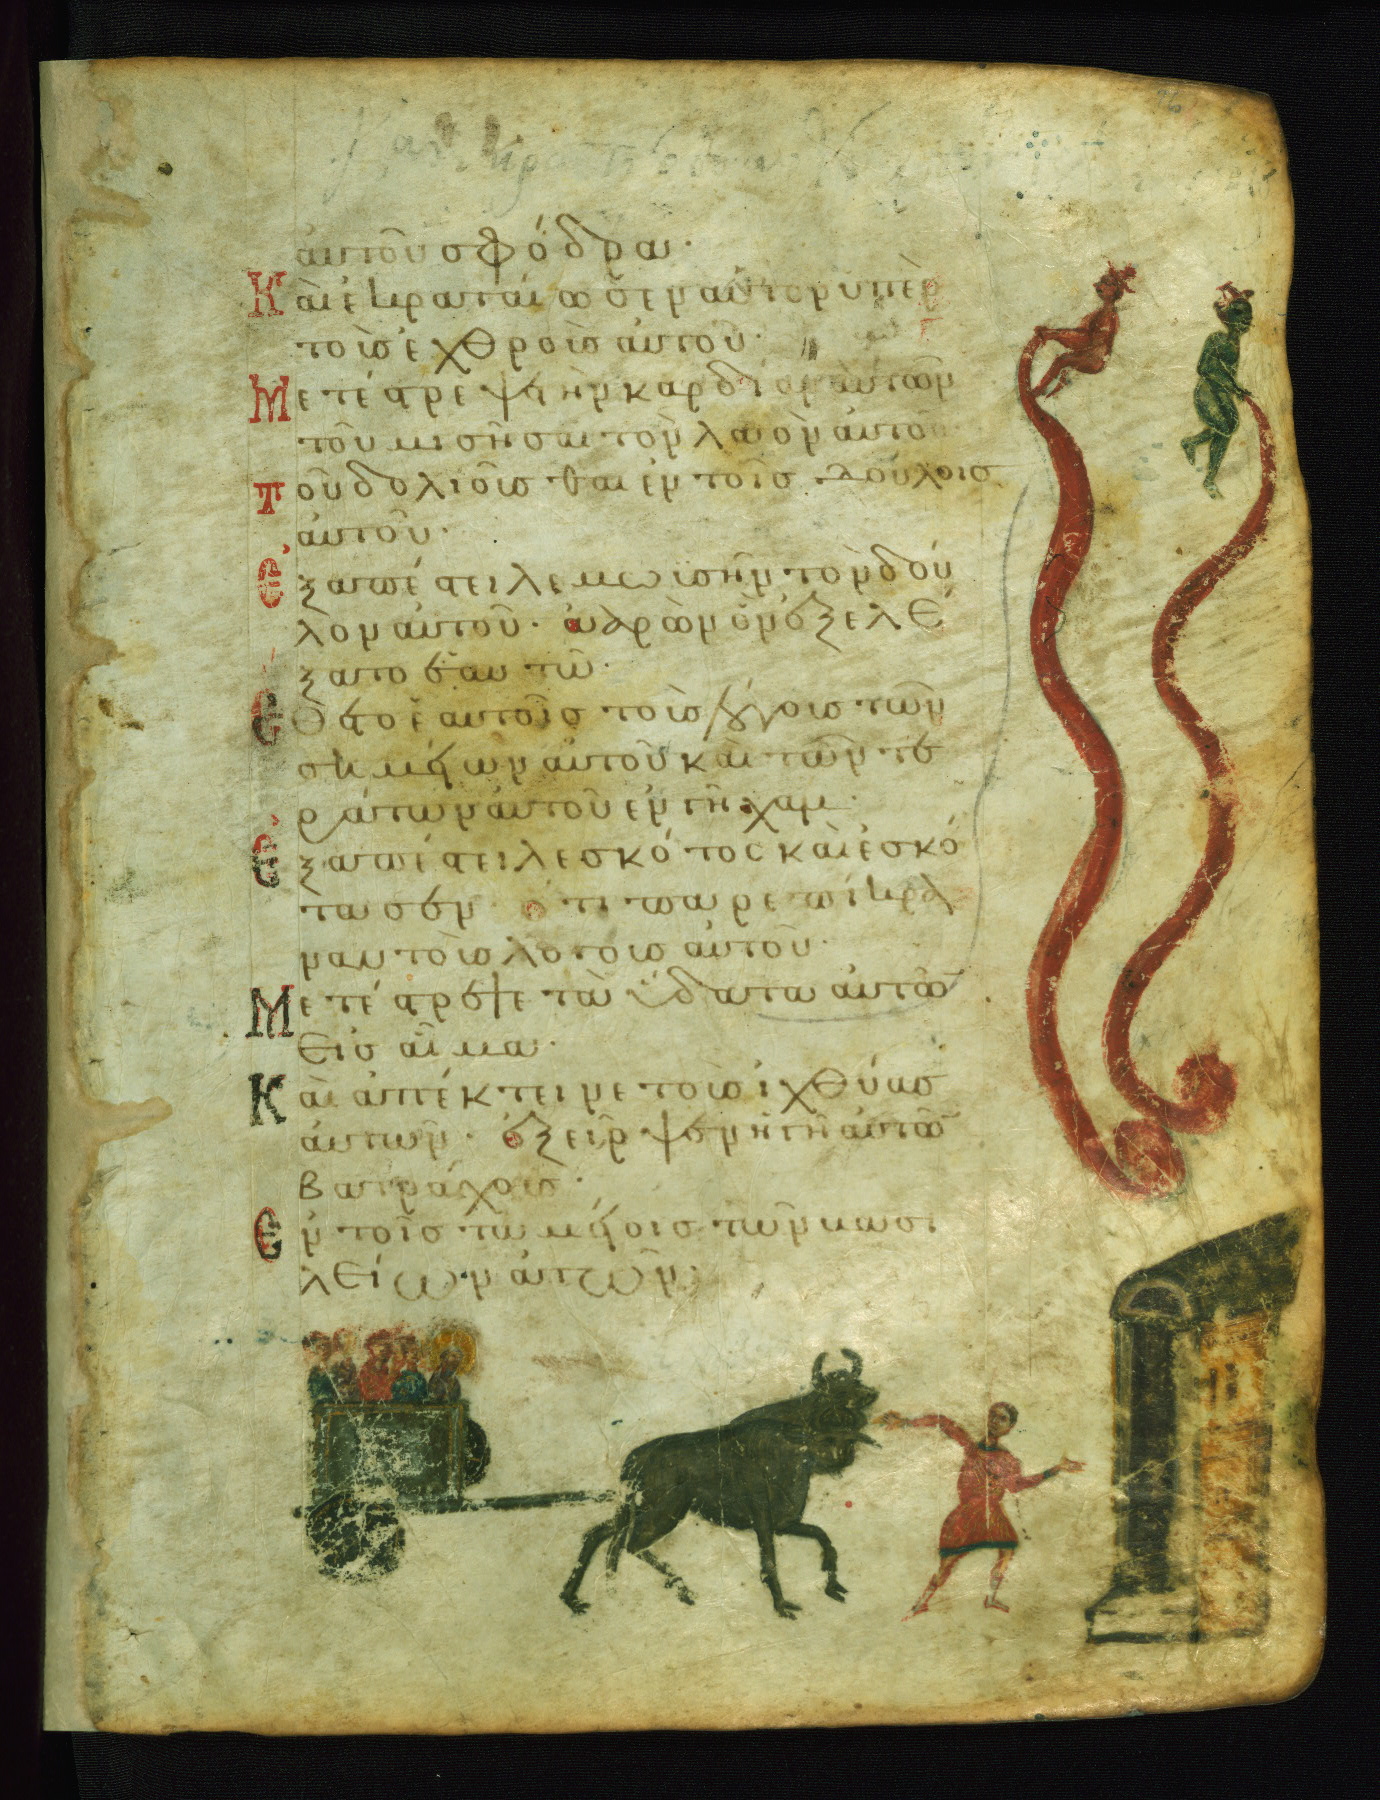 ἀυτοῦ σφόδρα·
Καὶ ἐκραταίωσεν αὐτὸν ὑπὲρ
τοὺς ἐχθροὺς ἀυτοῦ·
Μετέστρεψε τὴν καρδίαν ἀυτῶν
τοῦ μισῆσαι τὸν λαὸν ἀυτοῦ
τοῦ δολιοῦσθαι ἐν τοῖς δούλοις
ἀυτοῦ·
Ἐξαπέστειλε μωϋσῆν τὸν δοῦ
λον ἀυτοῦ· ἀαρὼν ὃν ἐξελέ
ξατο ἑαυτῶ·
Ἔθετο ἐν αυτοῖς τοὺς λόγους τῶν
σημείων ἀυτοῦ καὶ τῶν τε
ράτων ἀυτοῦ ἐν γῆ χαμ·
Ἐξαπέστειλε σκότος καὶ ἐσκό
τασεν· ὅτι παρεπίκρα
ναν τοὺς λόγους ἀυτοῦ·
Μετέστρεψε τὰ ὕδατα ἀυτῶ
εἰς αἷμα·
Καὶ ἀπέκτεινε τοὺς ἰχθύας
ἀυτῶν· ἐξεῖρψεν ἡ γῆ ἀυτῶ
βατράχους·
Ἐν τοῖς ταμείοις τῶν βασι
λείων ἀυτῶν·